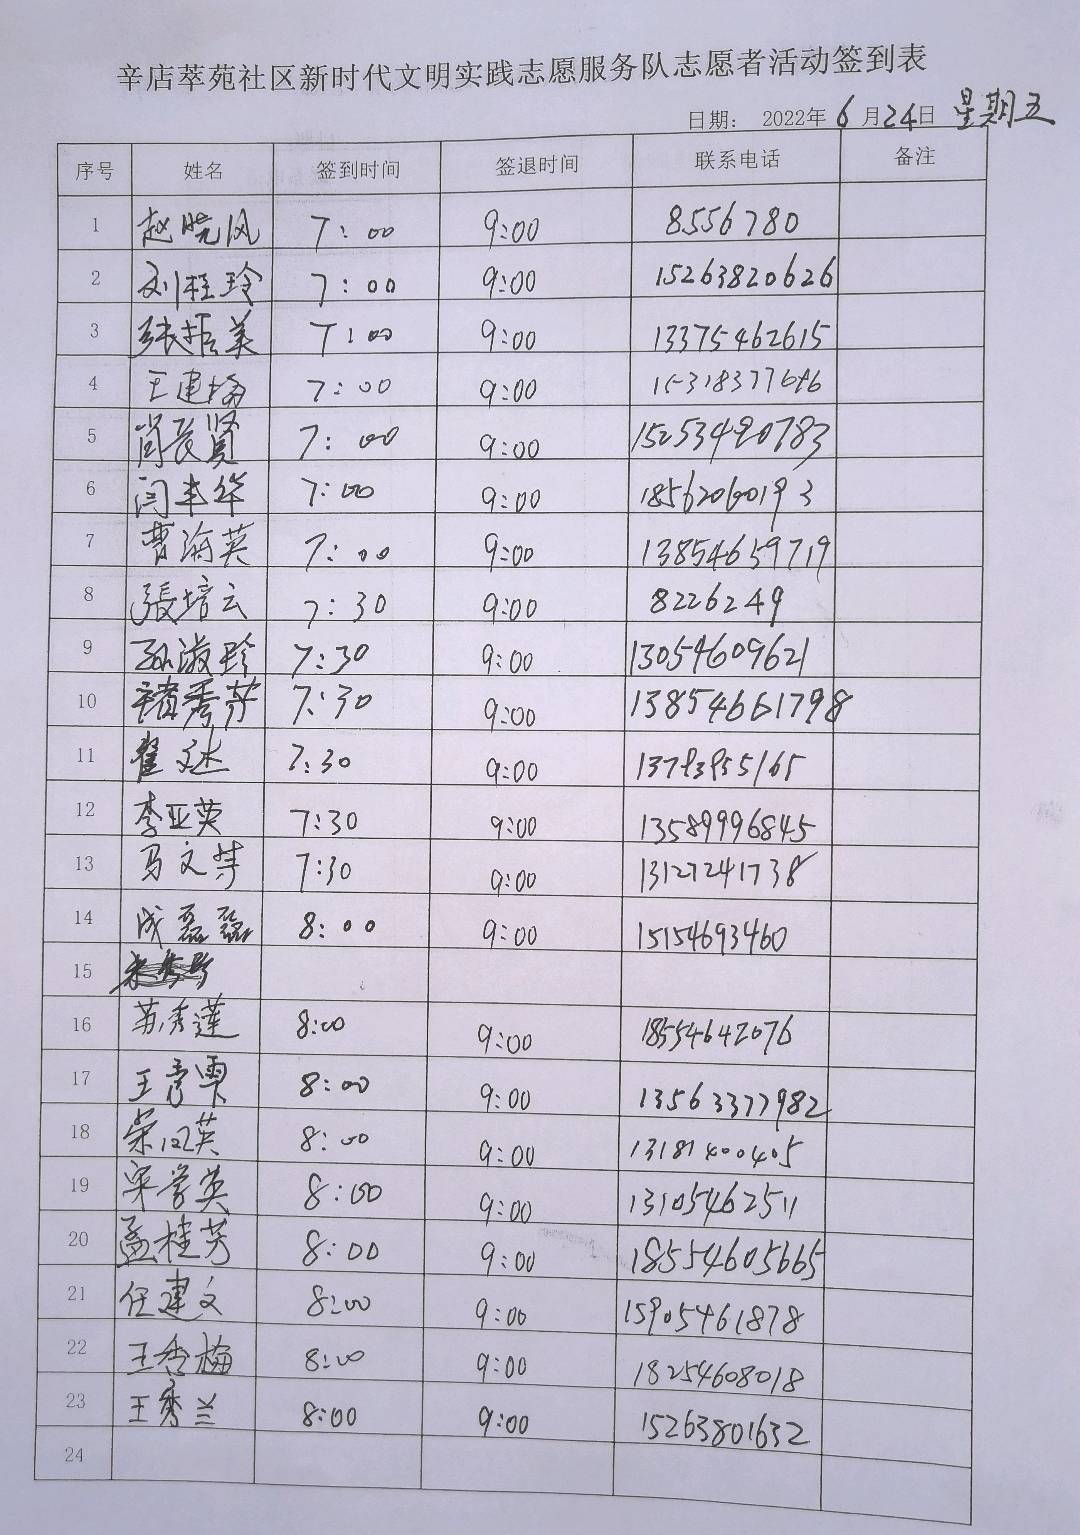 辛店萃苑社区新时代文明实践志愿服务队志愿者活动签到表
日期： 2022年6月24日 星期五
序号 姓名 签到时间 签退时间 联系电话 备注
1 赵晓风 7:00 9:00 8556780
2 刘桂玲 7:00 9:00 15263820626
3 张振美 7:00 9:00 13375462615
4 王建梅 7:00 9:00
5 肖长贤 7:00 9:00 15253490783
6 闫丰华 7:00 9:00 18562060193
7 曹海英 7:00 9:00 13854659719
8 張培云 7:30 9:00 8226249
9 孙淑珍 7:30 9:00 13054609621
10 褚秀芬 7:30 9:00 13854661798
11 翟 7:30 9:00 13793955165
12 李亚英 7:30 9:00 13589996845
13 马文芳 7:30 9:00 13127241738
14 成磊磊 8:00 9:00 15154693460
15
16 苏秀莲 8:00 9:00 18554642076
17 王彦霞 8:00 9:00 13563377982
18 荣凤英 8:00 9:00 13181400405
19 宋学英 8:00 9:00 13105462511
20 孟桂芳 8:00 9:00 18554605665
21 任建文 8:00 9:00 15905461878
22 王秀梅 8:00 9:00 18254608018
23 王秀兰 8:00 9:00 15263801632
24